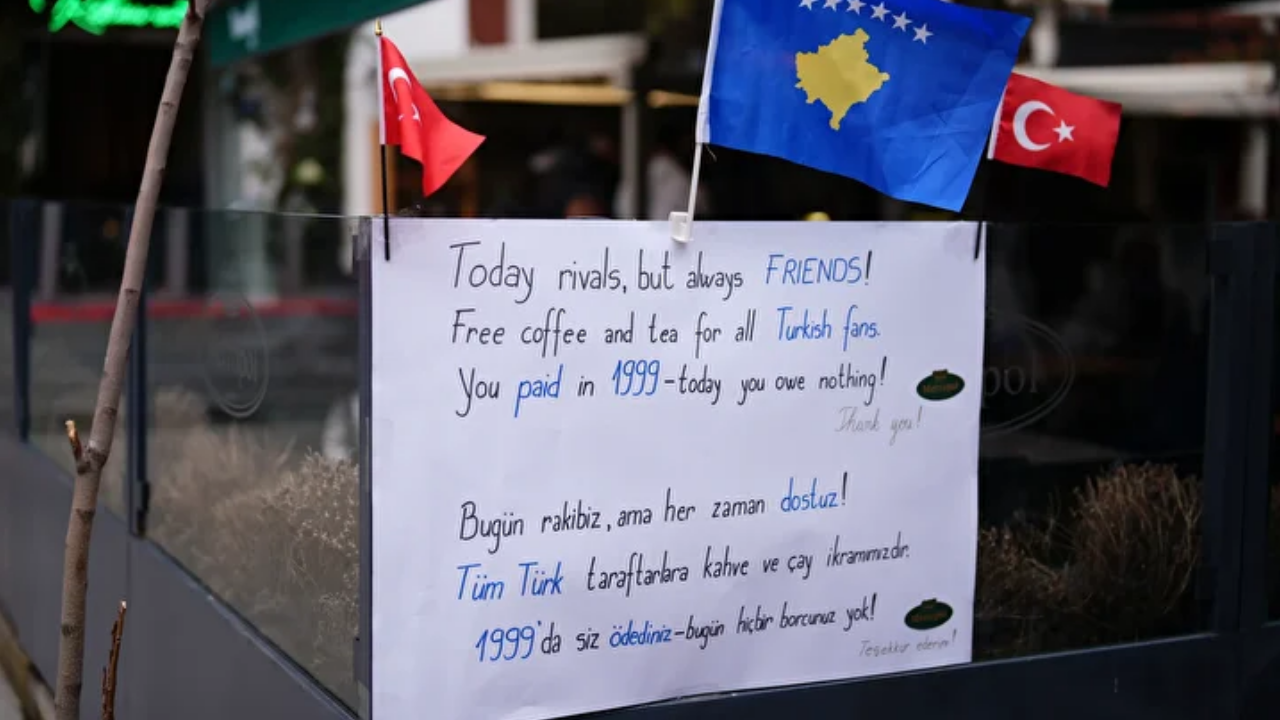 Today rivals, but always FRIENDS!
Free coffee and tea for all Turkish fans.
You paid in 1999 - today you owe nothing!
Thank you!
Bugün rakibiz, ama her zaman dostuz!
Tüm Türk taraftarlara kahve ve çay ikramımızdır.
1999'da siz ödediniz - bugün hiçbir borcunuz yok!
Teşekkür ederim!